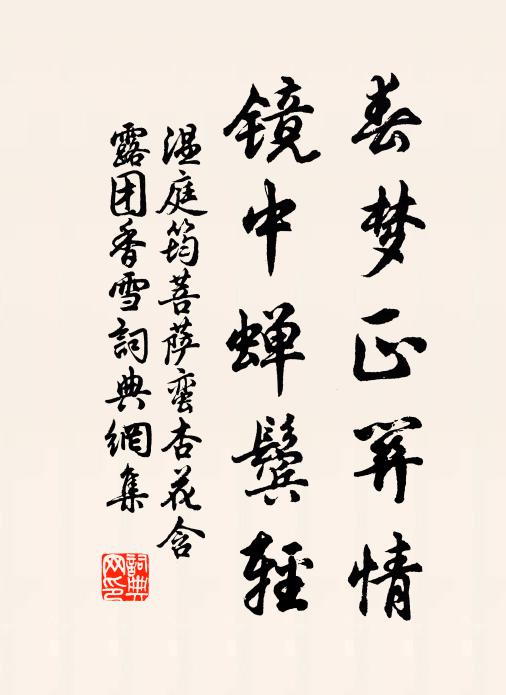 春梦正关情
镜中蝉鬓轻
温庭筠菩萨蛮杏花含
露团香雪詞典網集
詞典
网印